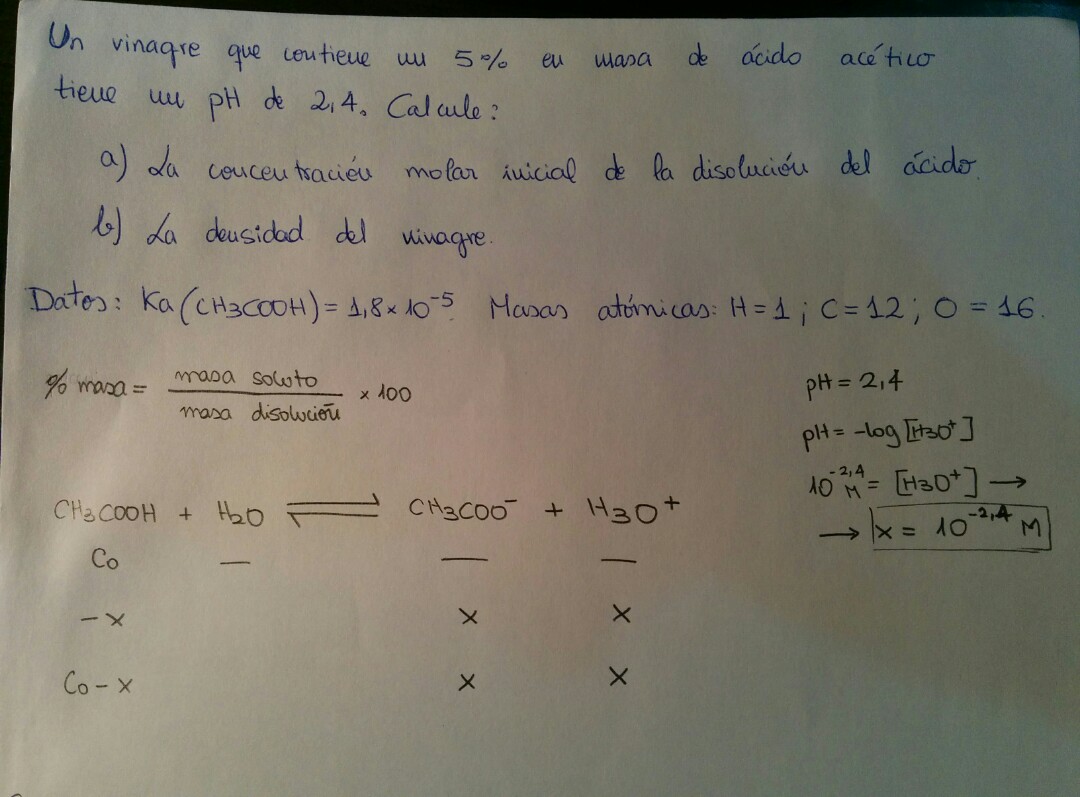 Un vinagre que contiene un 5% en masa de ácido acético
tiene un pH de 2,4. Calcule:
a) La concentración molar inicial de la disolución del ácido.
b) La densidad del vinagre.
Datos: Ka(CH3COOH) = 1,8×10⁻⁵. Masas atómicas: H=1; C=12; O=16.
% masa = masa soluto / masa disolución × 100
pH = 2,4
pH = -log [H3O⁺]
10⁻²,⁴ M = [H3O⁺] →
→ x = 10⁻²,⁴ M
CH3COOH + H2O ⇌ CH3COO⁻ + H3O⁺
Co — — —
-x x x
Co-x x x